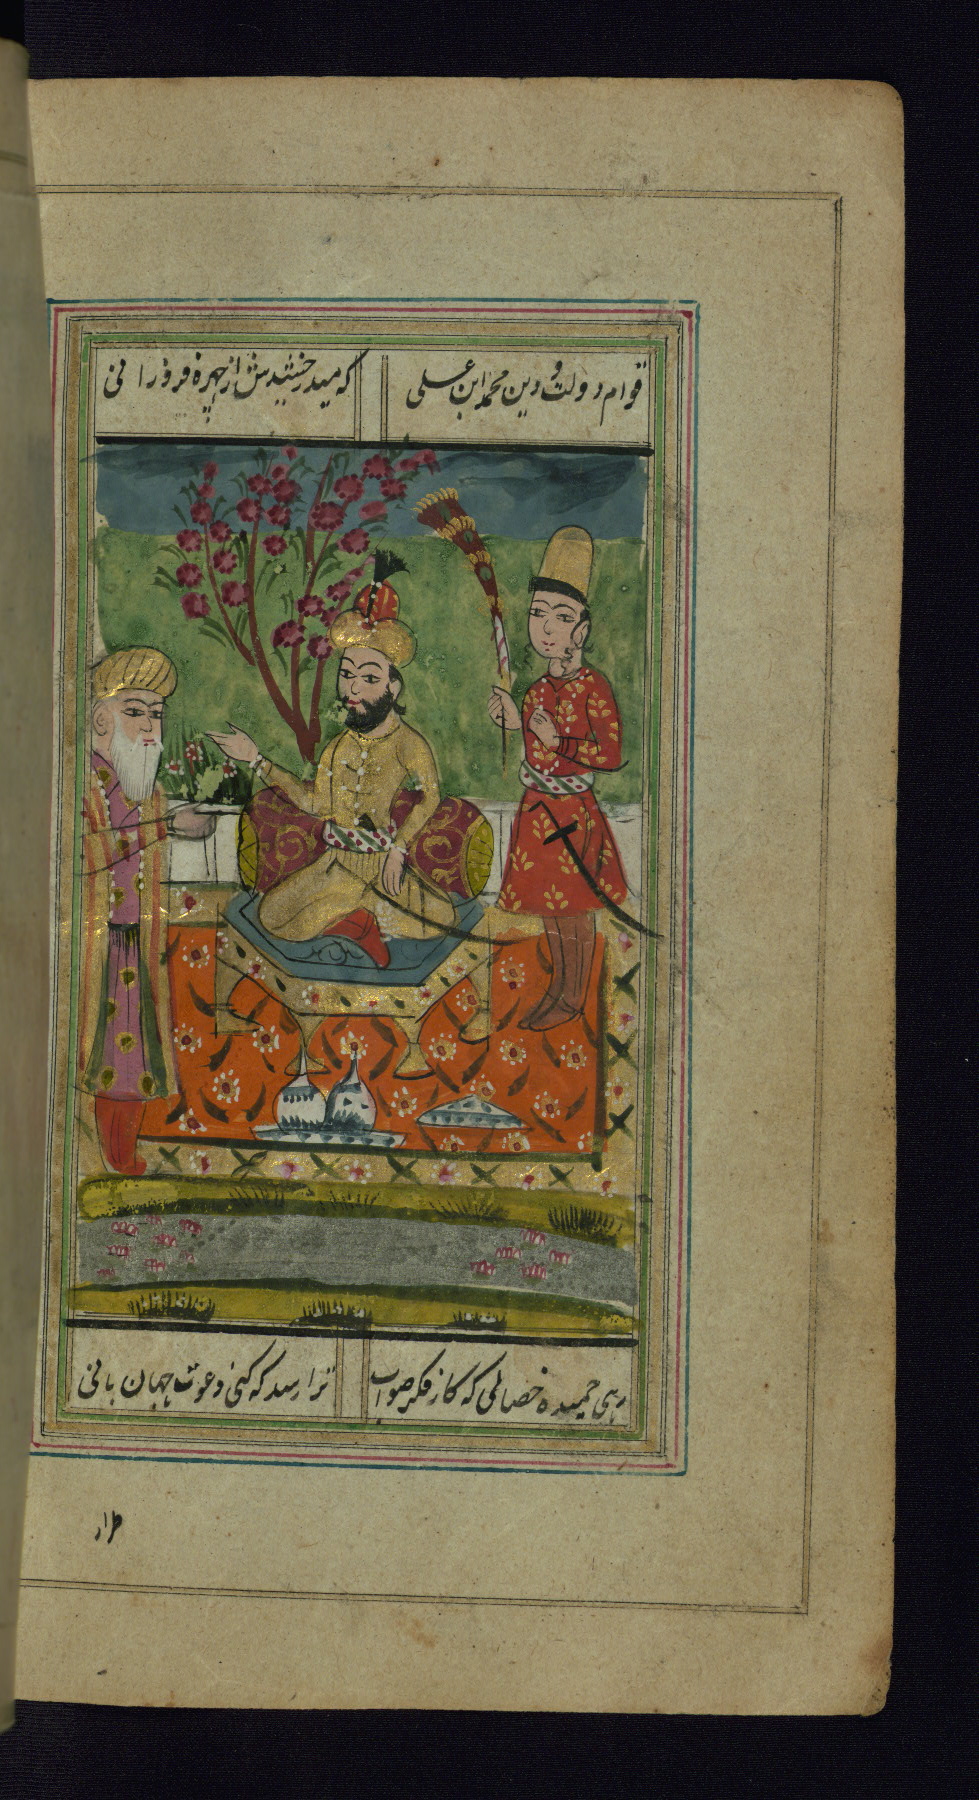 قوام دولت و دین محمد ابن علی
که میدرخشیدش از چهره فر یزدانی
زهی حمیده خصالی که گاه فکر صواب
ترا رسد که کنی دعوت جهان بانی
طراز